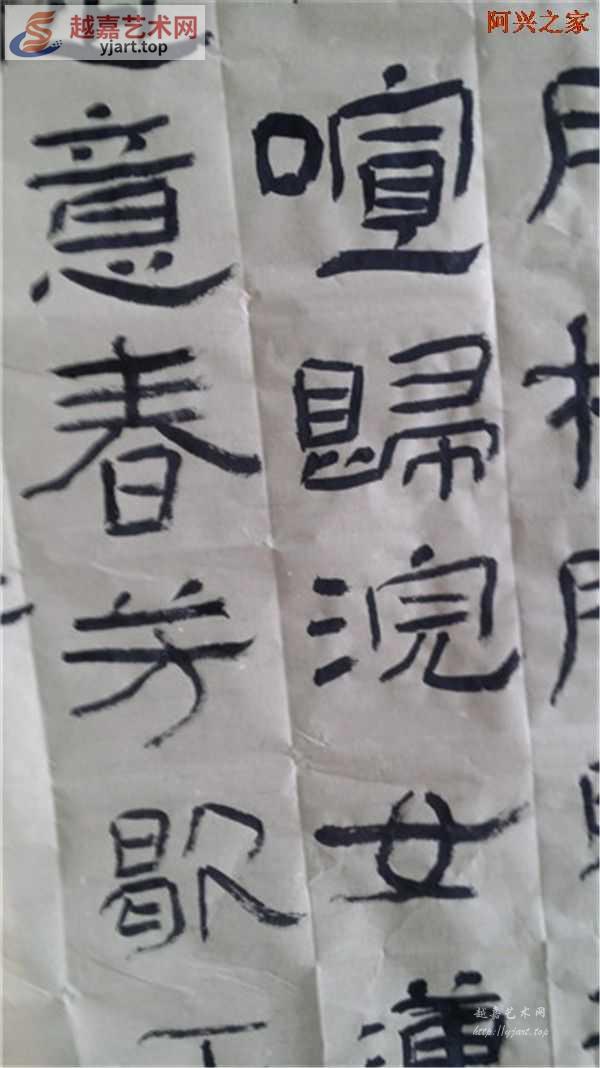 越嘉艺术网
yjart.top
阿兴之家
喧歸浣女蓮
意春芳歇
越嘉艺术网
http://yjart.top